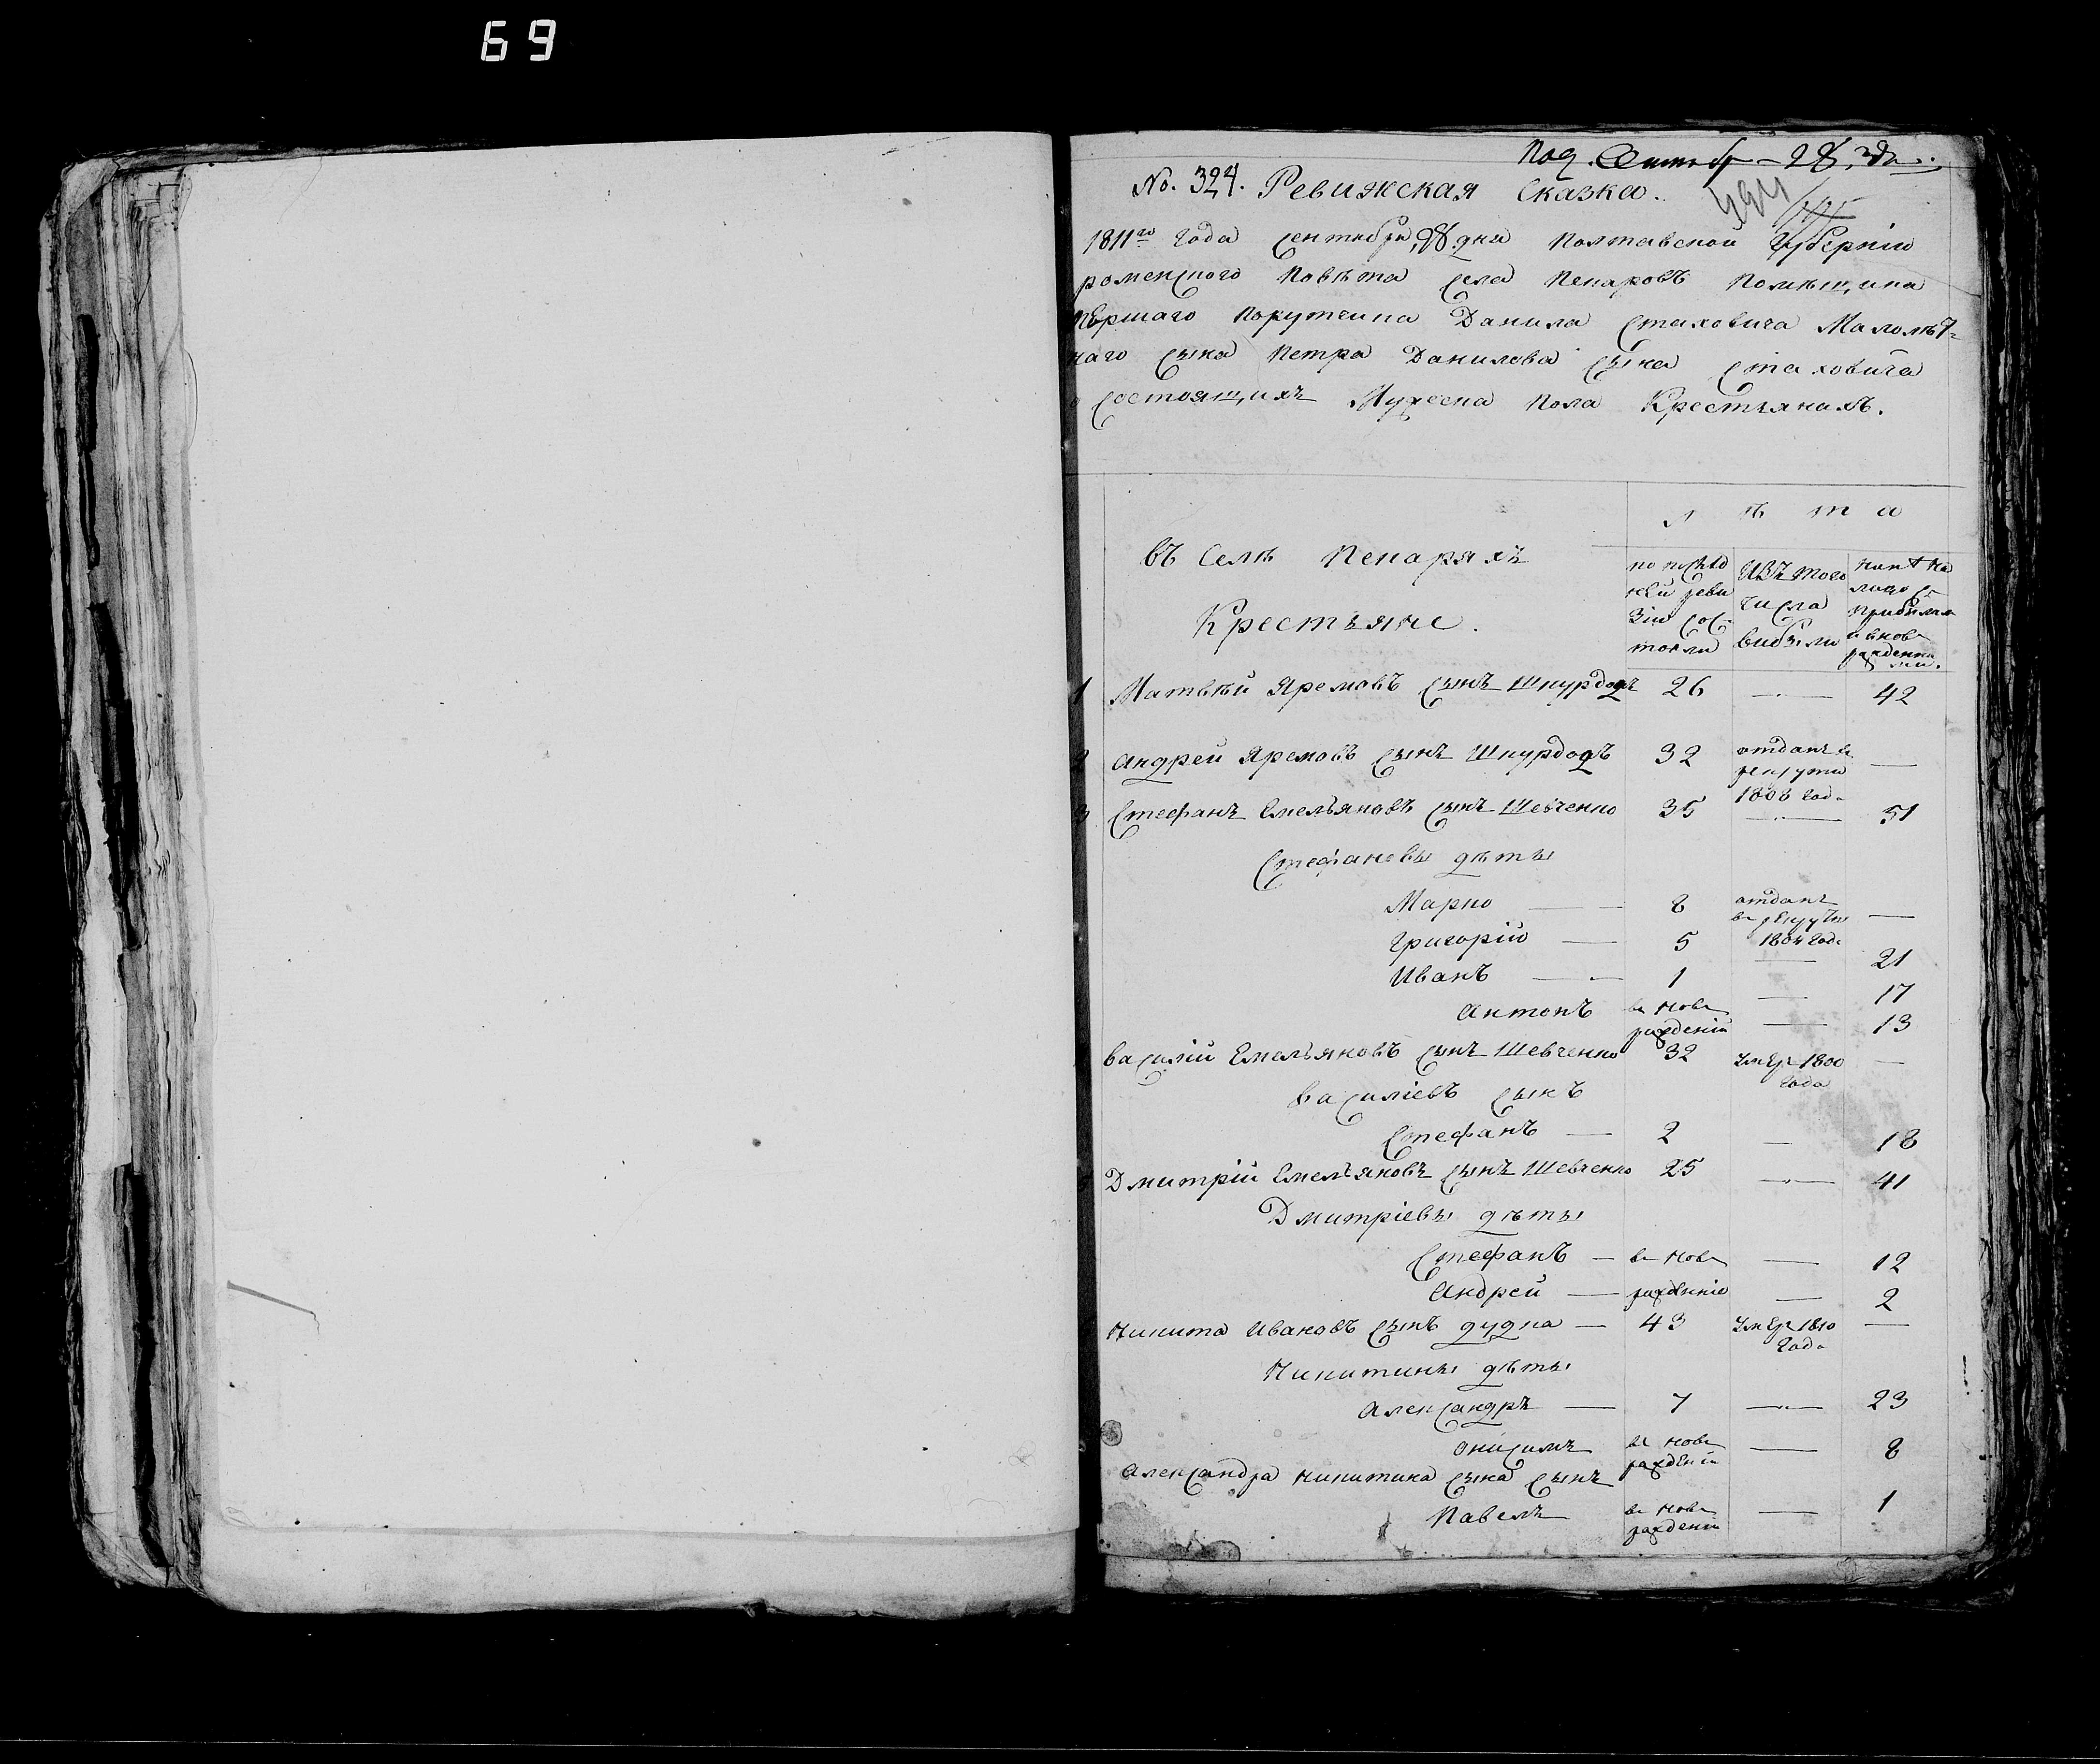 69
No. 324. Ревижская Сказка.
1811го года сентября 28 дня Полтавской Губерніи
роменского Повѣта села Пекаровъ Помѣщика
умершаго Порутчика Данила Стаховича Малолѣт-
наго сына Петра Данилова сына Стаховича
о состоящихъ Мужеска пола Крестьянахъ.
въ селѣ Пекаряхъ
Крестьяне.
Л ѣ т а
по послѣд
ней реви
зіи сос-
тояли
Изъ того
числа
выбыли
1 Матвѣй Яремовъ сынъ 26 — 42
2 Андрей Яремовъ сынъ 32 отданъ въ рекруты 1808 года —
3 Стефанъ Емельяновъ сынъ Шевченко 35 — 51
Стефановы дѣты
Марко — 8 отданъ въ рекруты 1804 года —
Григорій — 5 — 21
Иванъ — 1 — 17
Антонъ вновь рожденій — 13
Василій Емельяновъ сынъ Шевченко 32 умер 1800 года —
Василіевъ сынъ
Стефанъ — 2 — 18
Дмитрій Емельяновъ сынъ Шевченко 25 — 41
Дмитріевы дѣты
Стефанъ — вновь — 12
Андрей — рожденніе — 2
Никита Ивановъ сынъ дудка — 43 умер 1810 года —
Никитины дѣты
Александръ — 7 — 23
Онисимъ вновь рожденій — 8
Александра Никитина сына сынъ
Павелъ вновь рожденій — 1